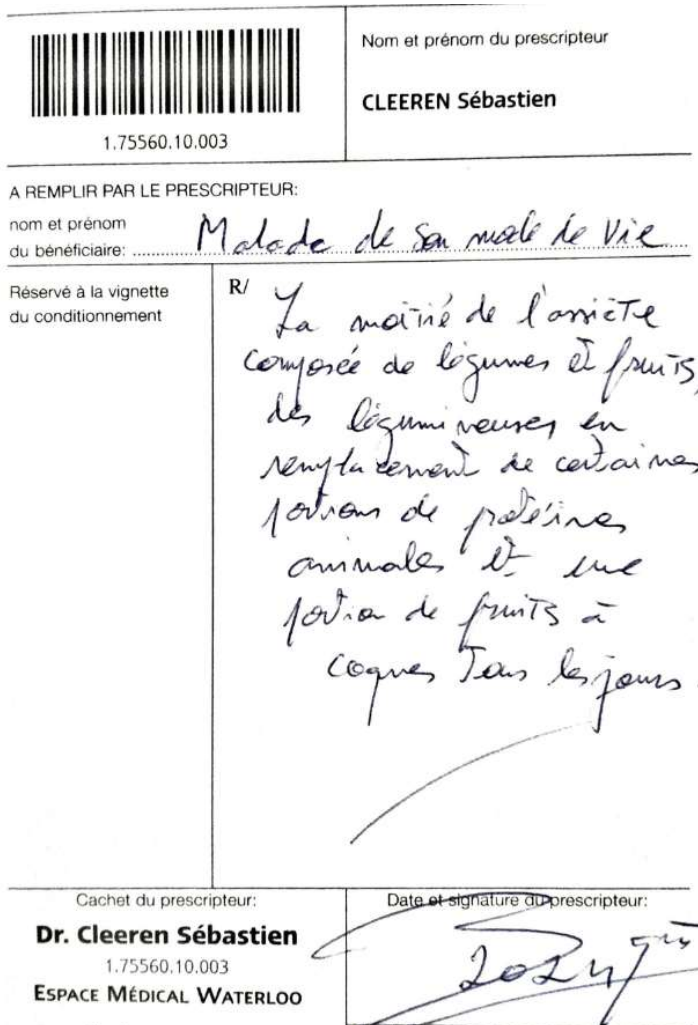 Nom et prénom du prescripteur
CLEEREN Sébastien
1.75560.10.003
A REMPLIR PAR LE PRESCRIPTEUR:
nom et prénom
du bénéficiaire: Malade de son mode de vie
Réservé à la vignette
du conditionnement
R/
La moitié de l'assiette
composée de légumes et fruits,
des légumineuses en
remplacement de certaines
portions de protéines
animales et une
portion de fruits à
coques tous les jours.
Cachet du prescripteur:
Dr. Cleeren Sébastien
1.75560.10.003
ESPACE MÉDICAL WATERLOO
Date et signature du prescripteur: